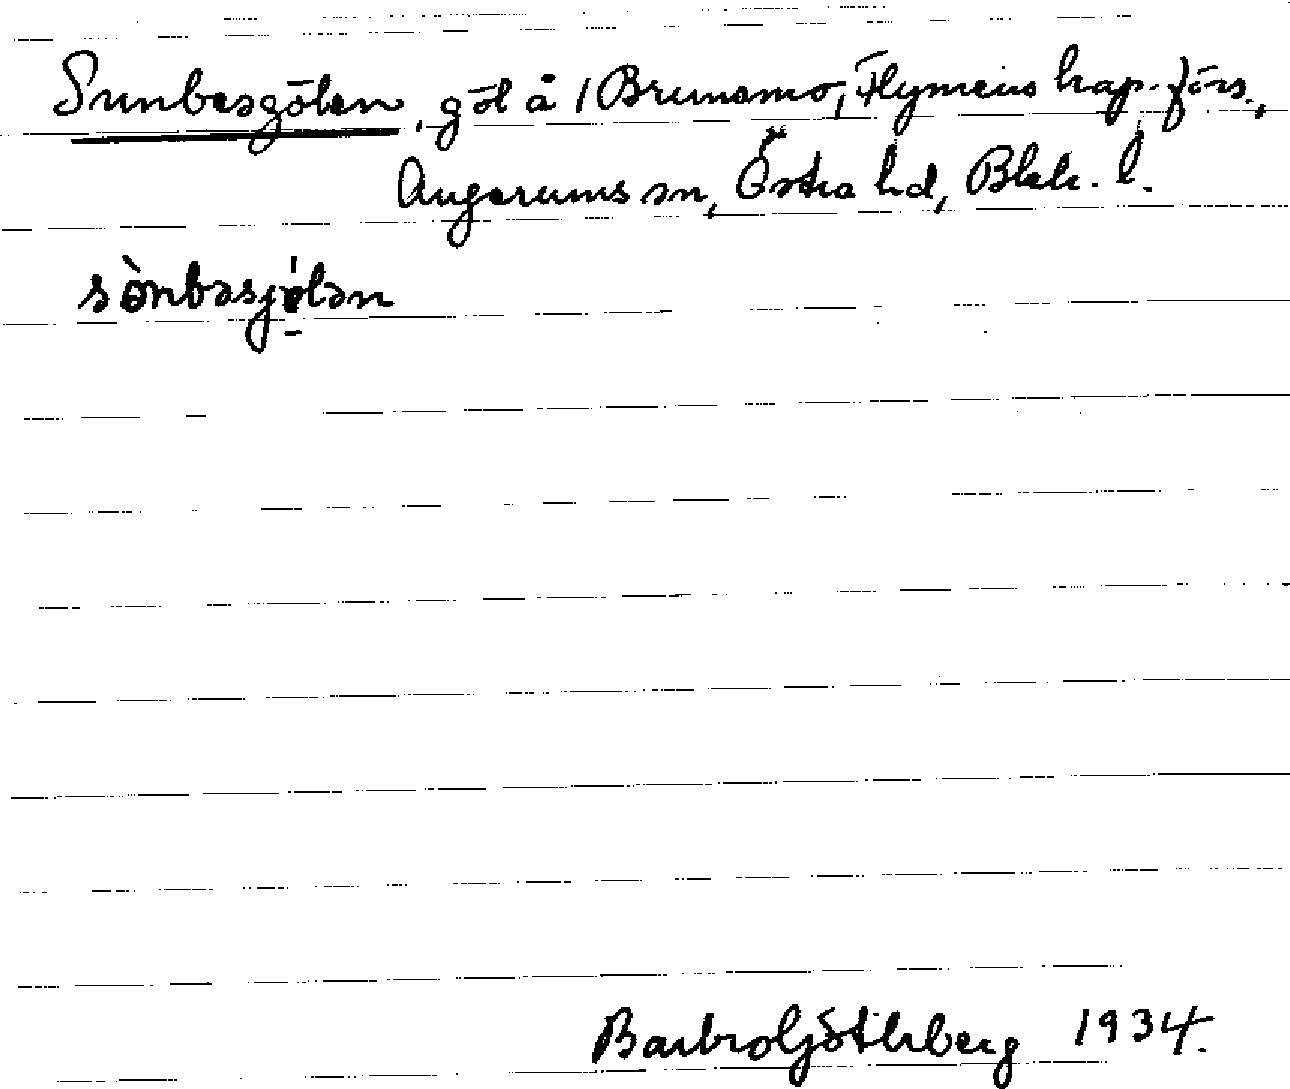 Sunbesgölen, göl å 1 Brunsmo, Flymens kap.förs.,
Augerums sn, Östra hd, Blek. l.
sònbəsjölən
Barbro Götherberg 1934.